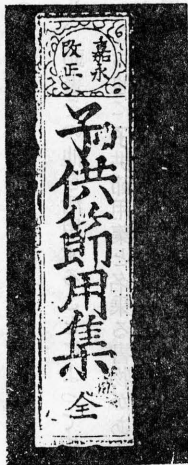 嘉永
改正
子供節用集
全